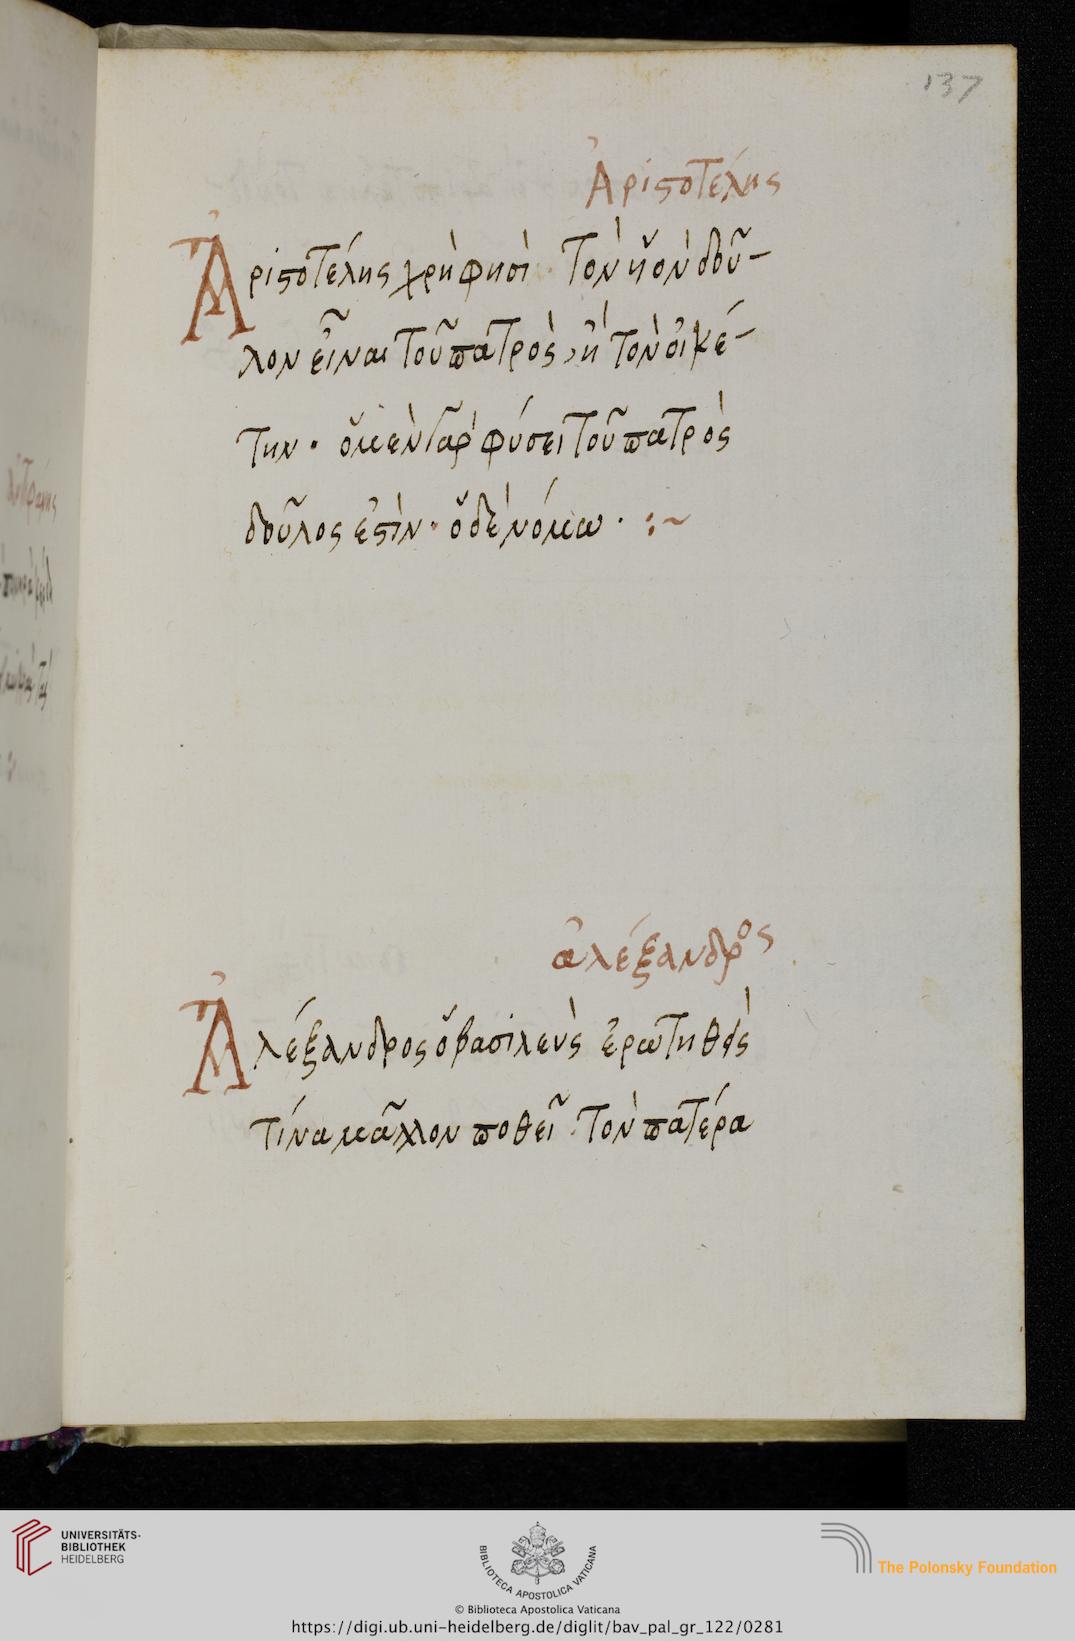 137
Ἀριστοτέλης
Ἀριστοτέλης χρὴ φησὶ· τὸν ὑὸν δοῦ-
λον εἶναι τοῦ πατρὸς, ἢ τὸν οἰκέ-
την· ὁ μὲν γὰρ φύσει τοῦ πατρὸς
δοῦλος ἐστὶν· ὁ δὲ νόμω· :~
ἀλέξανδρος
Ἀλέξανδρος ὁ βασιλεὺς ἐρωτηθεὶς
τίνα μᾶλλον ποθεῖ· τὸν πατέρα
UNIVERSITÄTS-
BIBLIOTHEK
HEIDELBERG
BIBLIOTECA APOSTOLICA VATICANA
The Polonsky Foundation
© Biblioteca Apostolica Vaticana
https://digi.ub.uni-heidelberg.de/diglit/bav_pal_gr_122/0281